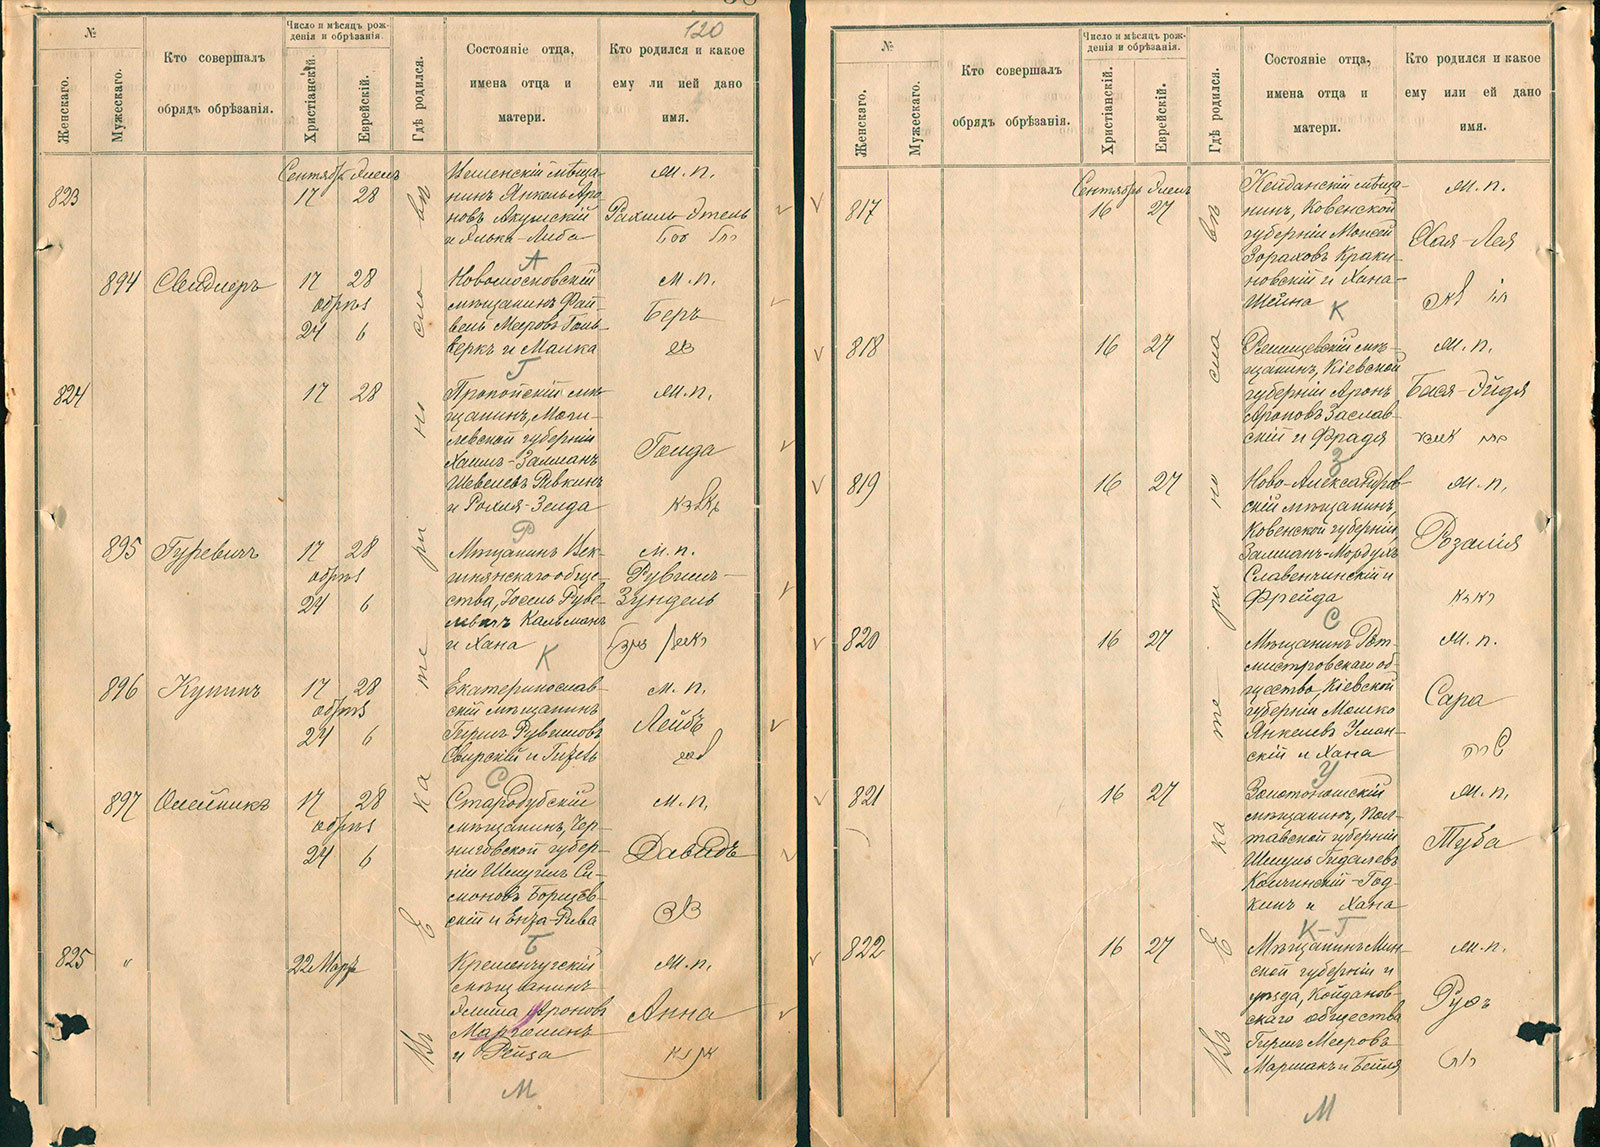 120
№
Женскаго.
Мужескаго.
Кто совершалъ
обрядъ обрѣзанія.
Число и мѣсяцъ рож-
денія и обрѣзанія.
Христіанскій.
Еврейскій.
Гдѣ родился.
Состояніе отца,
имена отца и
матери.
Кто родился и какое
ему ли ией дано
имя.
Въ Екатеринославѣ
823
Сентябрь Элемъ
17 28
мѣща-
нинъ Янкель Аро-
новъ
и Элька-Либа
м. п.
Рахиль-Этель
А
894
Свидлеръ
17 28
обрѣз
24 6
Новомосковскій
мѣщанинъ Фай-
вель Мееровъ Голь-
беркъ и Малка
м. п.
Беръ
Г
824
17 28
Пропойскій мѣ-
щанинъ, Моги-
левской губерніи
Хаимъ-Залманъ
Шевелевъ Ривкинъ
и Рохля-Зелда
м. п.
Голда
Р
895
Гуревичъ
17 28
обрѣз
24 6
Мѣщанинъ Век-
шнянскаго обще-
ства, Іосель Рубе-
Кальманъ
и Хана
м. п.
Рувимъ-
Зундель
К
896
Купинъ
17 28
обрѣз
24 6
Екатеринослав-
скій мѣщанинъ
Гиршъ Рувимовъ
Свирскій и Гизель
м. п.
Лейбъ
С
897
Олейникъ
17 28
обрѣз
24 6
Стародубскій
мѣщанинъ, Чер-
ниговской губер-
ніи Шмуилъ Си-
моновъ Борщев-
скій и Энза-Рива
м. п.
Давидъ
Б
825
"
22 Мартъ
Кременчугскій
мѣщанинъ
Элиша Ароновъ
Марголинъ
и Рейза
м. п.
Анна
М
№
Женскаго.
Мужескаго.
Кто совершалъ
обрядъ обрѣзанія.
Число и мѣсяцъ рож-
денія и обрѣзанія.
Христіанскій.
Еврейскій.
Гдѣ родился.
Состояніе отца,
имена отца и
матери.
Кто родился и какое
ему или ей дано
имя.
Въ Екатеринославѣ
817
Сентябрь Элемъ
16 27
Кейданскій мѣща-
нинъ, Ковенской
губерніи Мовсей
Зораховъ Краки-
новскій и Хана-
Шейна
м. п.
Хая-Лея
К
818
16 27
мѣ-
щанинъ, Кіевской
губерніи Аронъ
Ароновъ Заслав-
скій и Фрадя
м. п.
Бася-Эйдя
З
819
16 27
Ново-Александров-
скій мѣщанинъ,
Ковенской губерніи,
Залманъ-Мордухъ
Славенчинскій и
Фрейда
м. п.
Розалія
С
820
16 27
Мѣщанинъ Рот-
мистровскаго об-
щества, Кіевской
губерніи Мошко
Янкелевъ Уман-
скій и Хана
м. п.
Сара
У
821
16 27
Золотоношскій
мѣщанинъ, Пол-
тавской губерніи
Шмуль Гидалевъ
Копчинскій-Год-
кинъ и Хана
м. п.
Туба
К-Г
822
16 27
Мѣщанинъ Мин-
ской губерніи и
уѣзда, Койданов-
скаго общества
Гиршъ Мееровъ
Маршакъ и Бейля
м. п.
Руфь
М